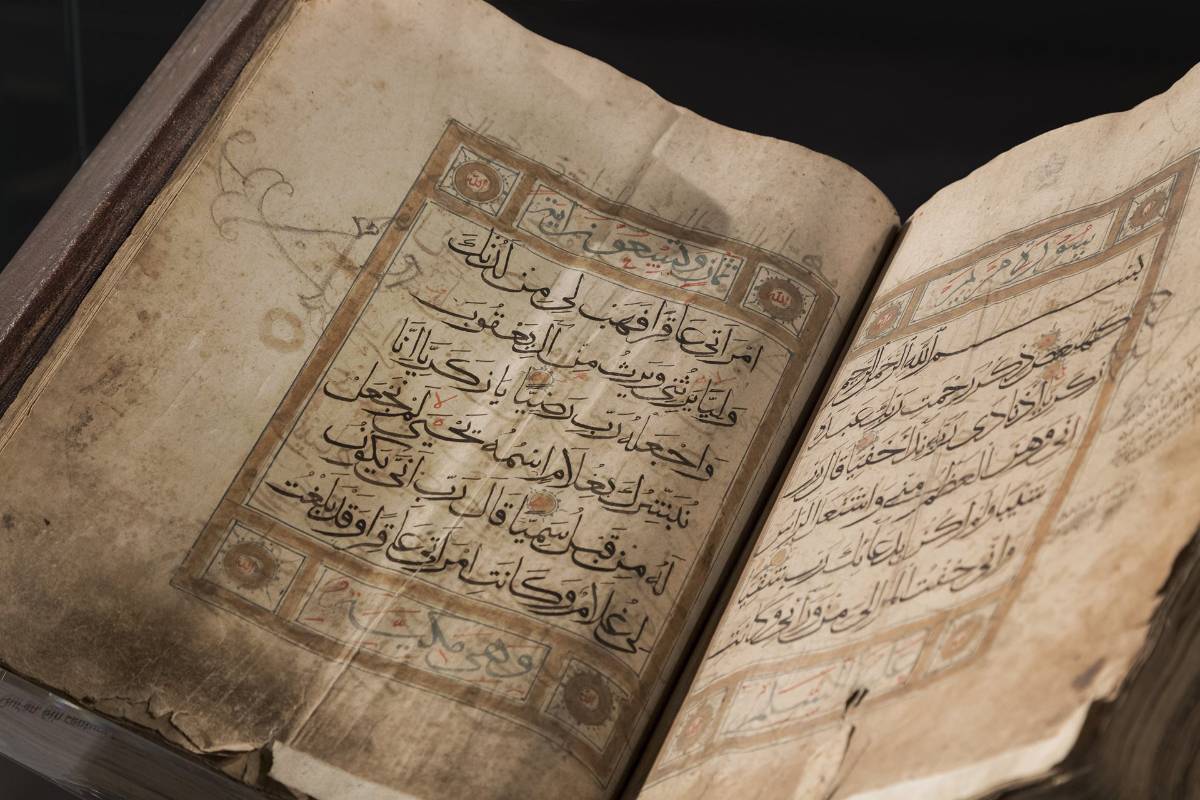 سورة مريم
بسم الله الرحمن الرحيم
كهيعص ذكر رحمت ربك عبده
زكريا اذ نادى ربه نداء خفيا قال رب
اني وهن العظم مني واشتعل الراس
شيبا ولم اكن بدعائك رب شقيا
واني خفت الموالي من ورائي وكانت
السلام
الله
ثمان وتسعون اية
الله
امراتي عاقرا فهب لي من لدنك
وليا يرثني ويرث من آل يعقوب
واجعله رب رضيا يا زكريا انا
نبشرك بغلام اسمه يحيى لم نجعل
له من قبل سميا قال رب انى يكون
لي غلام وكانت امراتي عاقرا وقد بلغت
وهي مكية